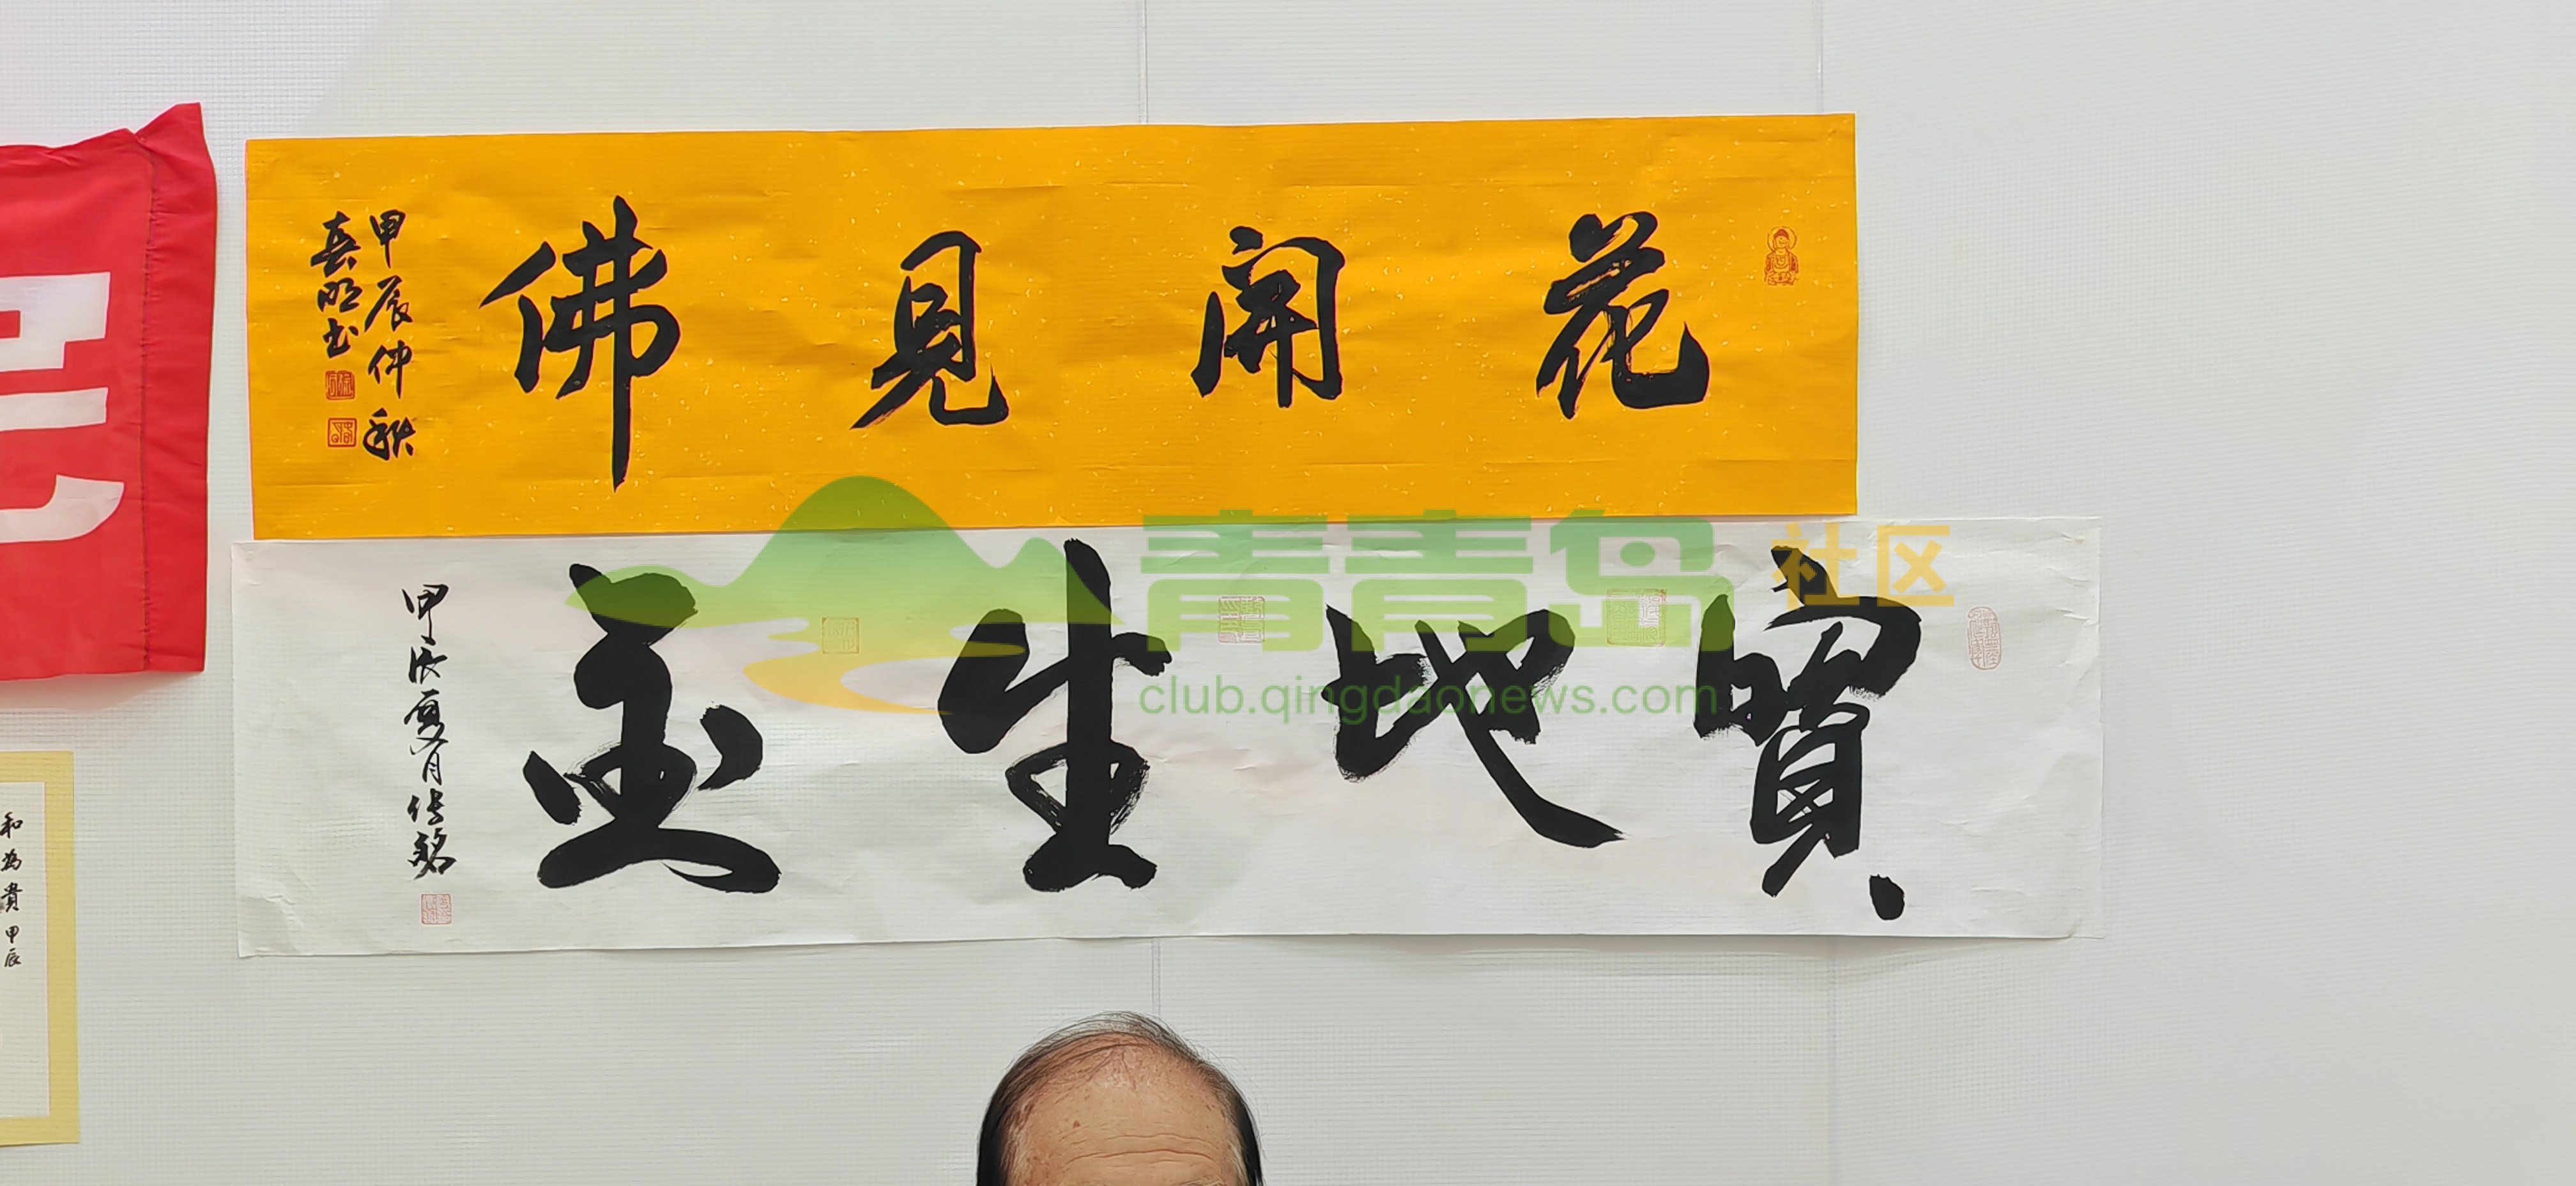 花開見佛
甲辰仲秋
喜明书
寳地生玉
甲辰夏月传铭
青青岛社区
club.qingdaonews.com
和為貴 甲辰